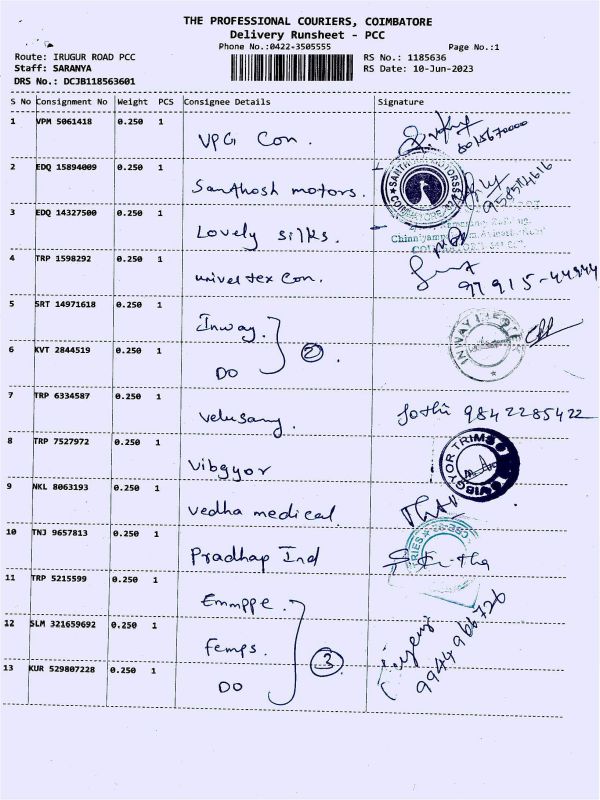 THE PROFESSIONAL COURIERS, COIMBATORE
Delivery Runsheet - PCC
Phone No.:0422-3505555 Page No.:1
Route: IRUGUR ROAD PCC RS No.: 1185636
Staff: SARANYA RS Date: 10-Jun-2023
DRS No.: DCJB118563601
S No Consignment No Weight PCS Consignee Details Signature
1 VPM 5061418 0.250 1 VPG Con.
2 EDQ 15894009 0.250 1 Santhosh motors. SANTHOSH MOTORS COIMBATORE
3 EDQ 14327500 0.250 1 Lovely silks.
4 TRP 1598292 0.250 1 univel tex Con. 97915-44444
5 SRT 14971618 0.250 1 Inway. INWAY
6 KVT 2844519 0.250 1 DO 2
7 TRP 6334587 0.250 1 velusamy. Jothi 9842285422
8 TRP 7527972 0.250 1 Vibgyor VIBGYOR TRIMS
9 NKL 8063193 0.250 1 vedha medical.
10 TNJ 9657813 0.250 1 Pradhap Ind
11 TRP 5215599 0.250 1 Emmppe.
12 SLM 321659692 0.250 1 Femps. 3 9944966726
13 KUR 529807228 0.250 1 DO